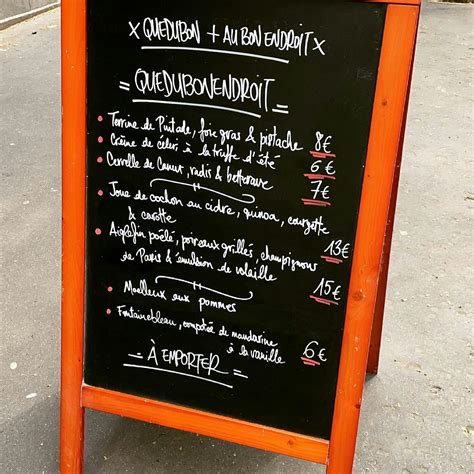 x QUEDUBON + AU BON ENDROIT x
= QUEDUBONENDROIT =
• Terrine de Pintade, foie gras & pistache 8€
• Crème de céleri à la truffe d'été 6€
• Cervelle de Canut, radis & betterave 7€
• Joue de cochon au cidre, quinoa, courgette
& carotte 13€
• Aiglefin poêlé, poireaux grillés, champignons
de Paris & émulsion de volaille 15€
• Moelleux aux pommes
• Fontainebleau, compotée de mandarine
à la vanille 6€
= À EMPORTER =